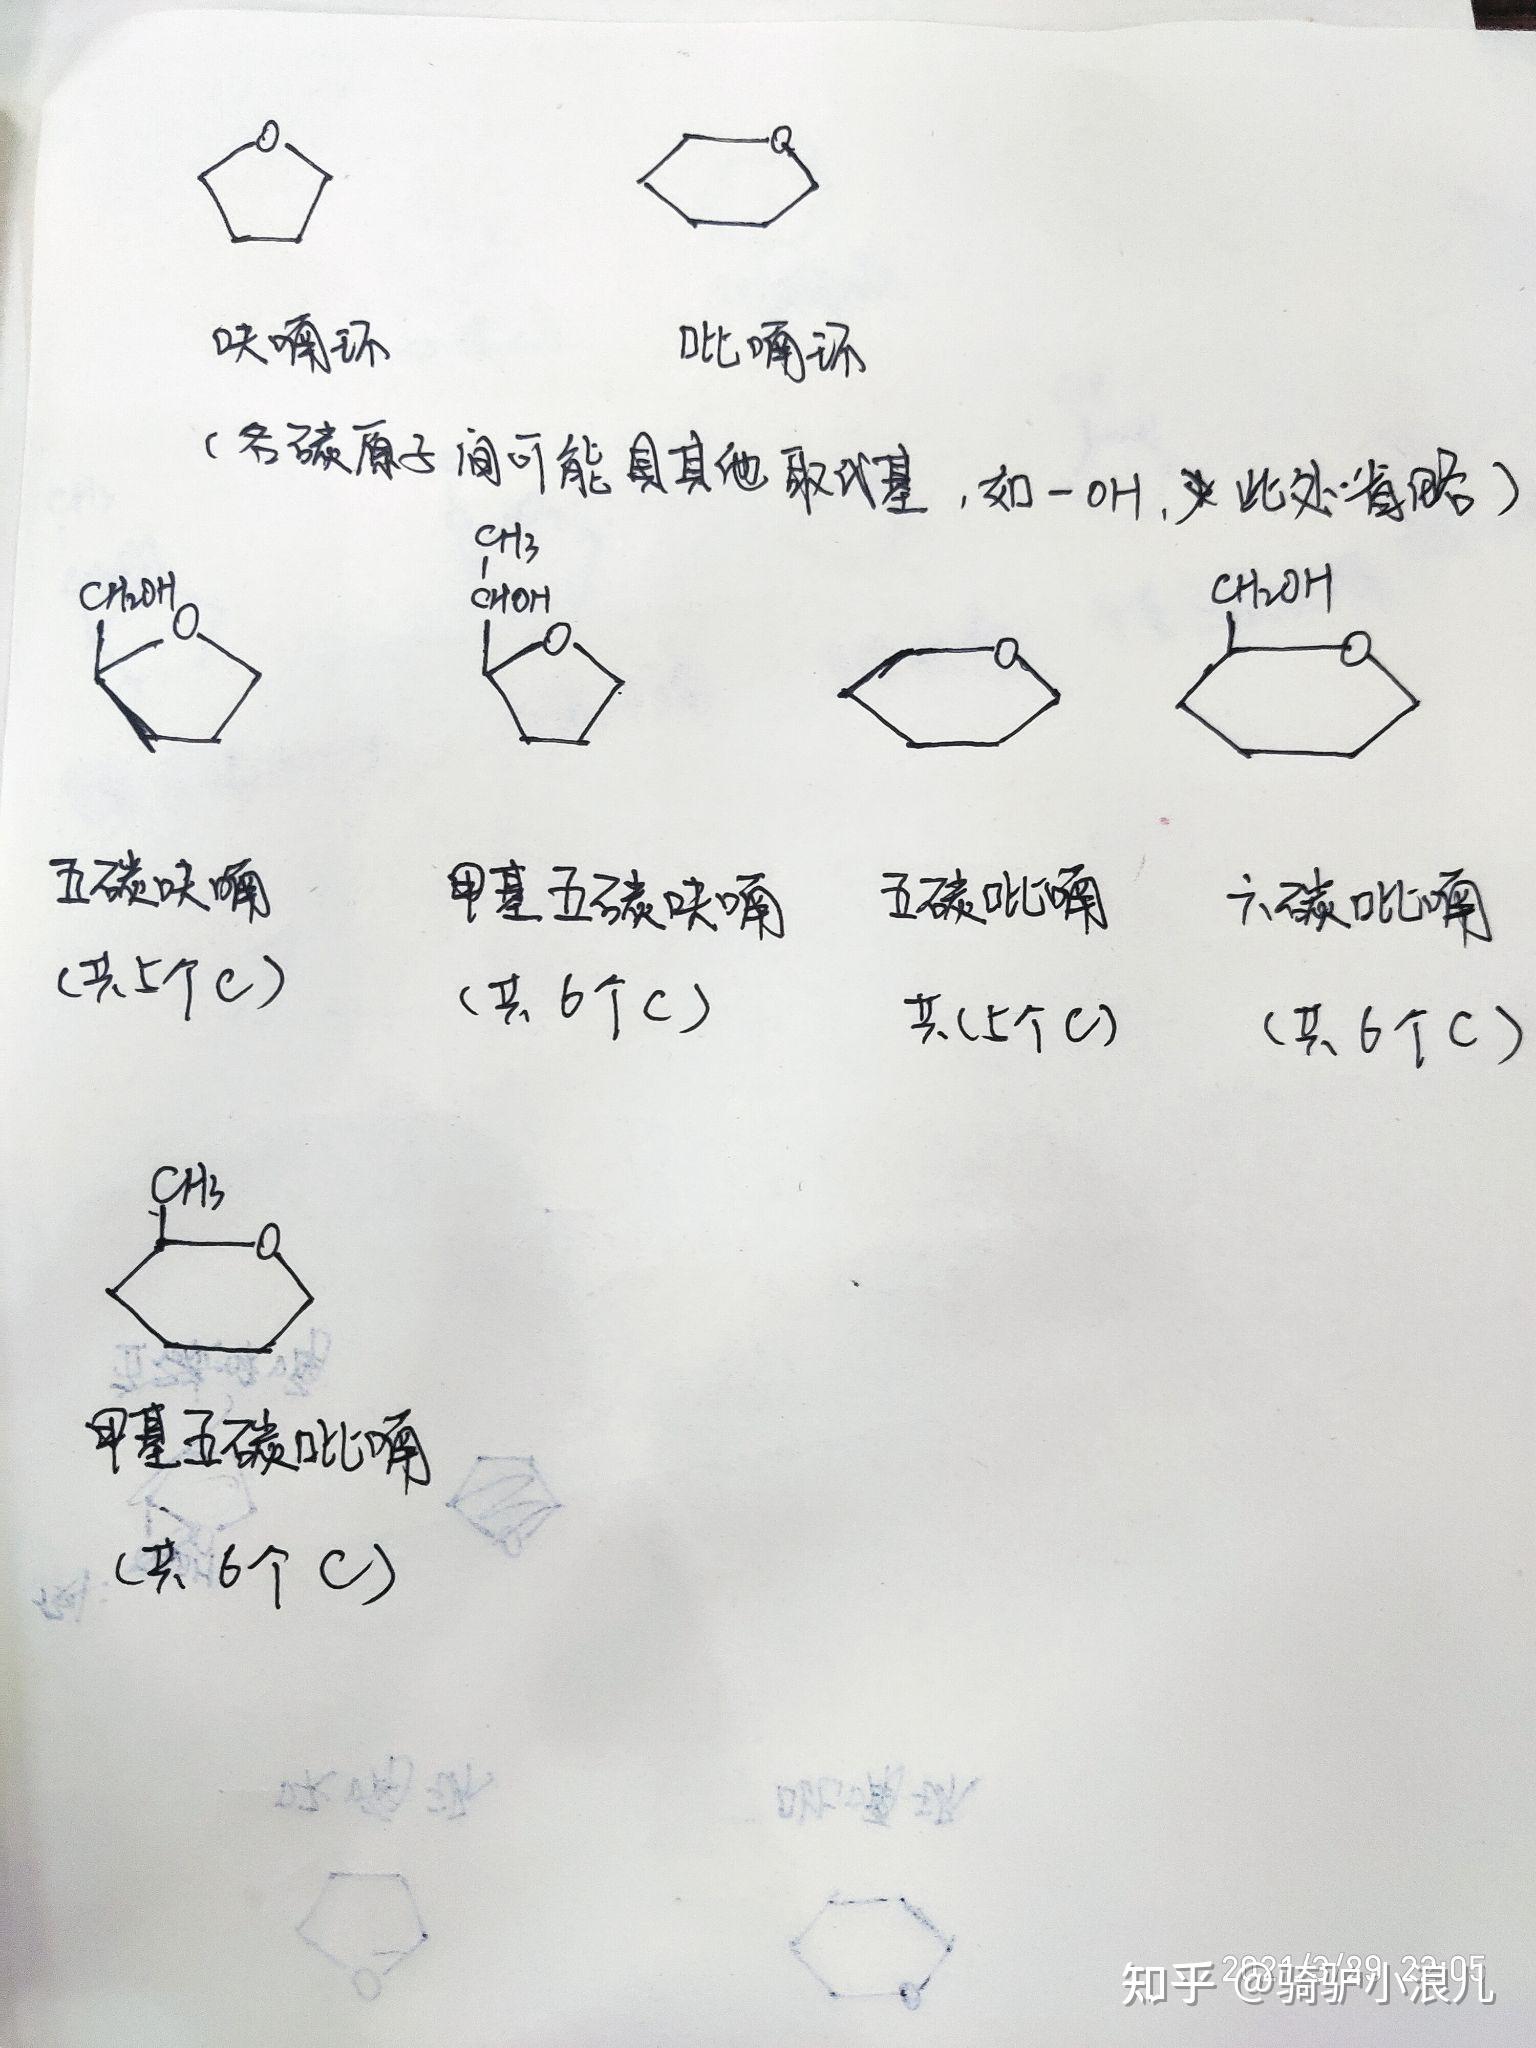 O
O
呋喃环
吡喃环
(各碳原子间可能具其他取代基,如-OH,此处省略)
CH3
CHOH
CH2OH
CH2OH
O
O
O
O
五碳呋喃
甲基五碳呋喃
五碳吡喃
六碳吡喃
(共5个C)
(共6个C)
共(5个C)
(共6个C)
CH3
O
甲基五碳吡喃
(共6个C)
2021/3/29 22:05
知乎 @骑驴小浪儿